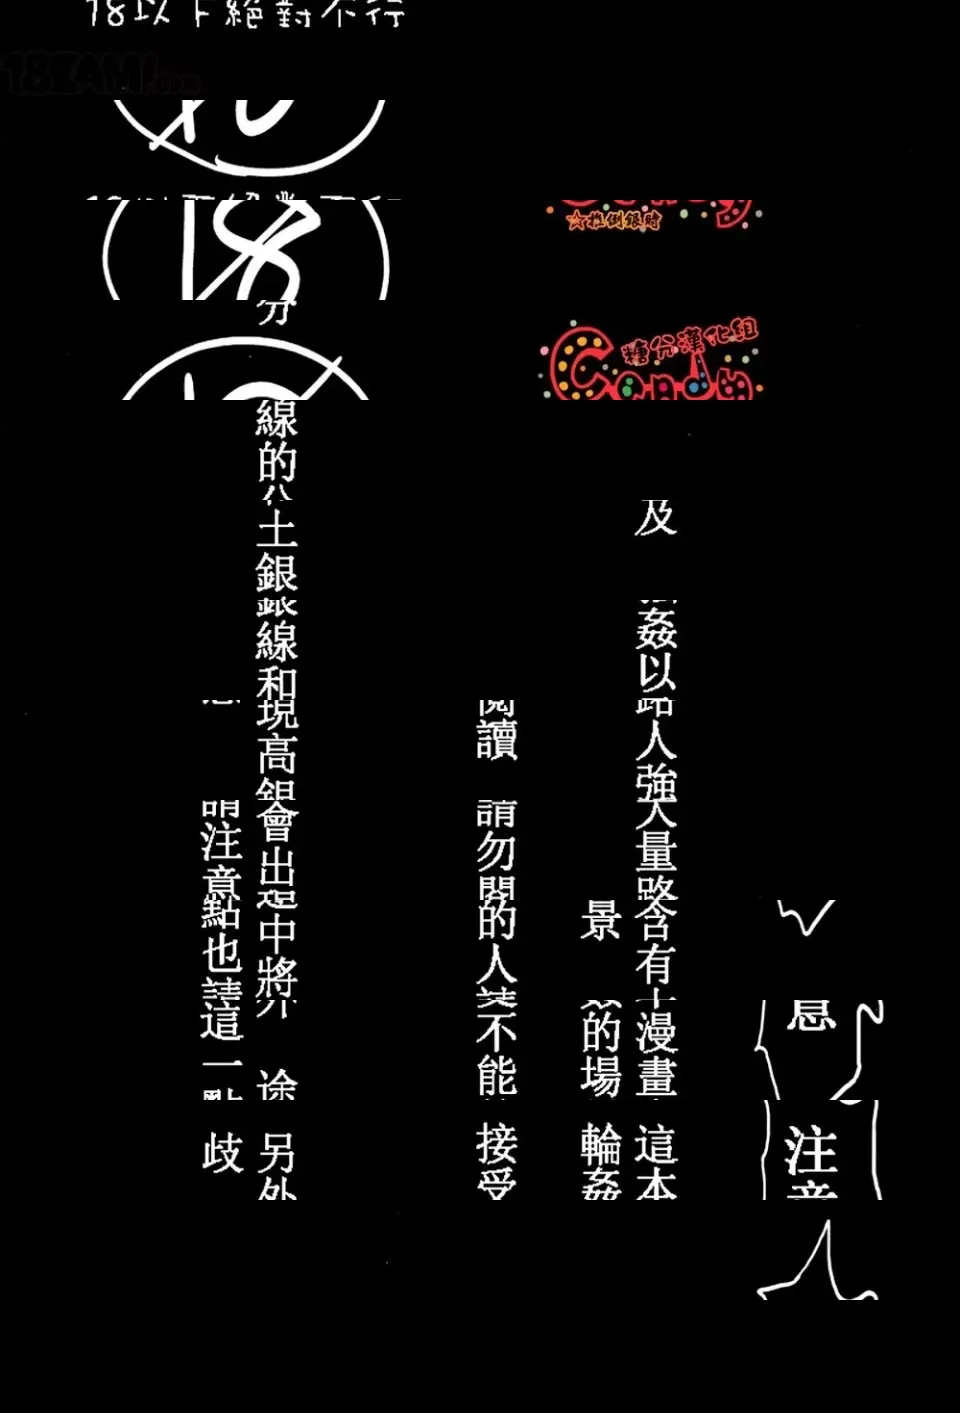 18以下絕對不行
18EAMI.com
☆推倒銀時
糖分漢化組
Candy
注意
及
姦以
路人強
大量路
含有
漫畫
這本
景
的場
輪姦
閱讀
請勿
的人
不能
接受
分
線的
土銀
線和
現高銀
會出
中將
途
另外
請注意
點也
這一
歧